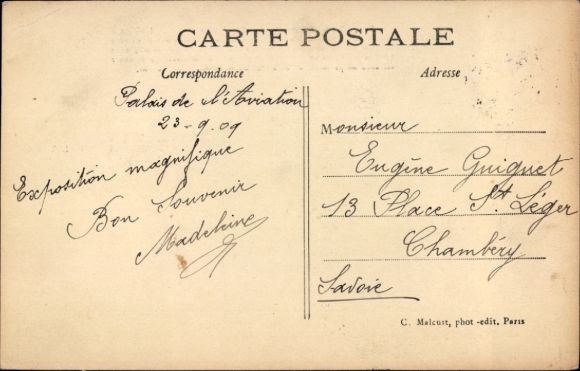 CARTE POSTALE
Correspondance
Palais de l'Aviation
23-9.09
Exposition magnifique
Bon Souvenir
Madeleine
Adresse
Monsieur
Eugène Guiguet
13 Place St. Léger
Chambéry
Savoie
C. Malcuit, phot-edit. Paris